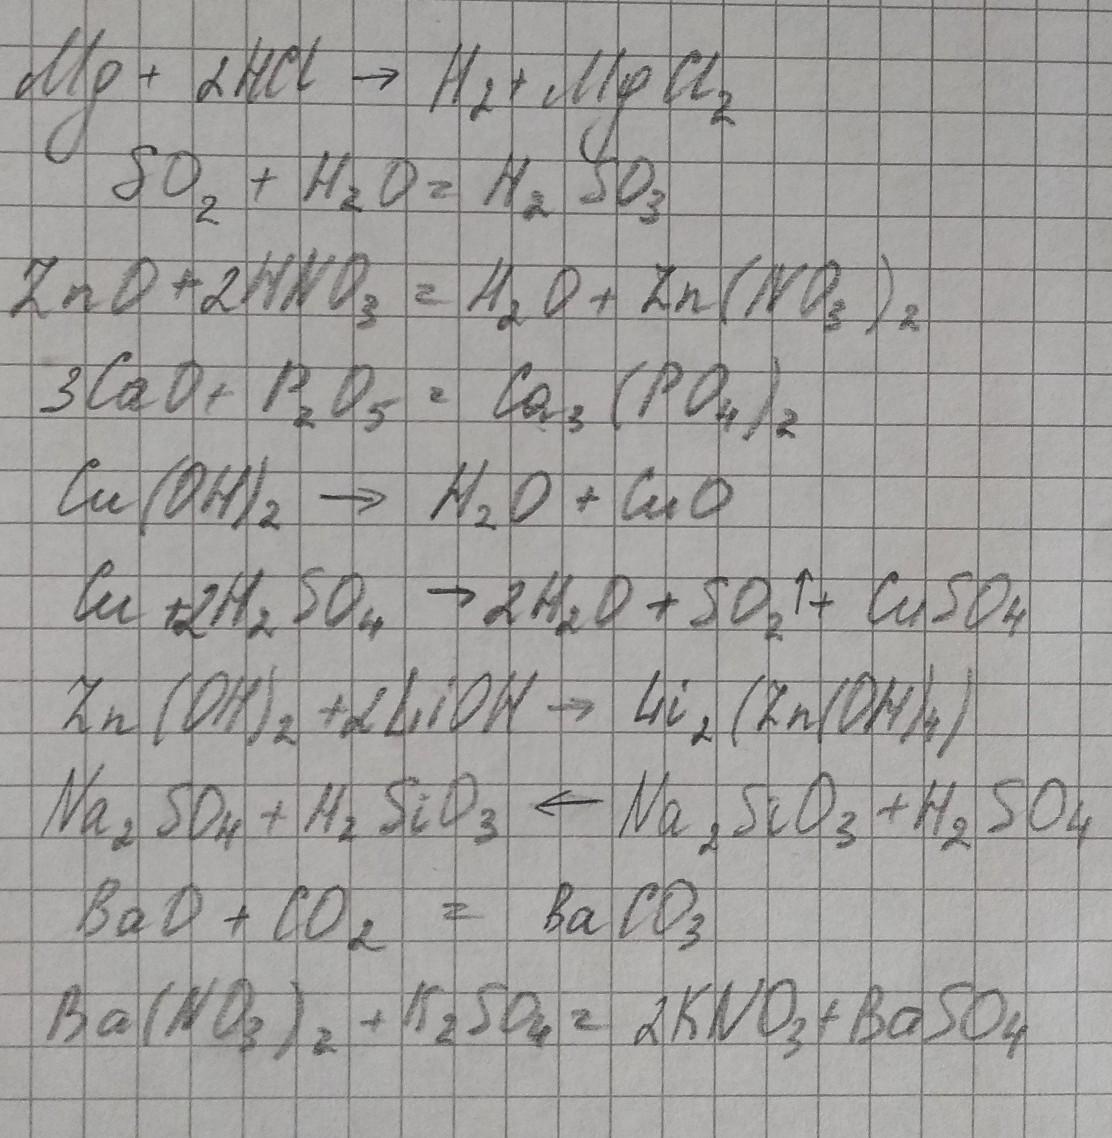 Mg + 2HCl → H₂ + MgCl₂
SO₂ + H₂O = H₂SO₃
ZnO + 2HNO₃ = H₂O + Zn(NO₃)₂
3CaO + P₂O₅ = Ca₃(PO₄)₂
Cu(OH)₂ → H₂O + CuO
Cu + 2H₂SO₄ → 2H₂O + SO₂↑ + CuSO₄
Zn(OH)₂ + 2LiOH → Li₂(Zn(OH)₄)
Na₂SO₄ + H₂SiO₃ ← Na₂SiO₃ + H₂SO₄
BaO + CO₂ = BaCO₃
Ba(NO₃)₂ + K₂SO₄ = 2KNO₃ + BaSO₄